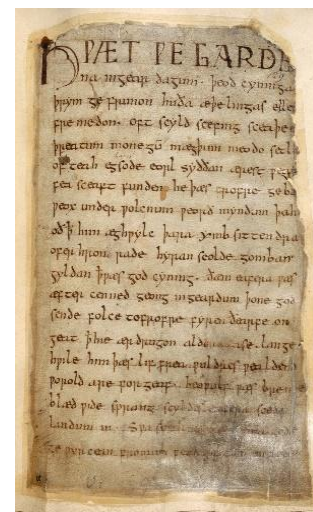 HǷÆT ǷE GARDE
na ingear dagum. þeod cyninga
þrym ge frunon huða æþelingas elle
fre medon. oft scyld scefing sceaþe
þreatum monegū mægþum meodo setl
of teah egsode eorl syððan ærest ƿ
fea sceaft funden he þæs frofre geba
ƿeox under ƿolcnum ƿeorð myndum þah
oð ꝥ him æghƿylc þara ymb sittendra
ofer hron rade hyran scolde gomban
gyldan ꝥ ƿæs god cyning. ðæm eafera ƿæs
æfter cenned geong ingeardum þone god
sende folce tofrofre fyren ðearfe on
geat ꝥ hie ær drugon aldor ase. lange
hƿile him þæs lif frea ƿuldres ƿealdend
ƿorold are forgeaf. beoƿulf ƿæs breme
blæd ƿide sprang scyldes eafera scede
landum in. Sƿa
ge ƿyrcean fromum